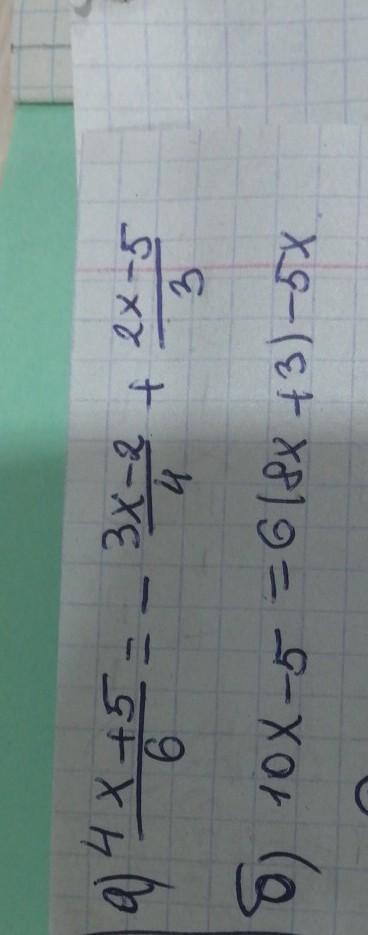 а) (4x+5)/6 = - (3x-2)/4 + (2x-5)/3
б) 10x-5 = 6(8x+3)-5x